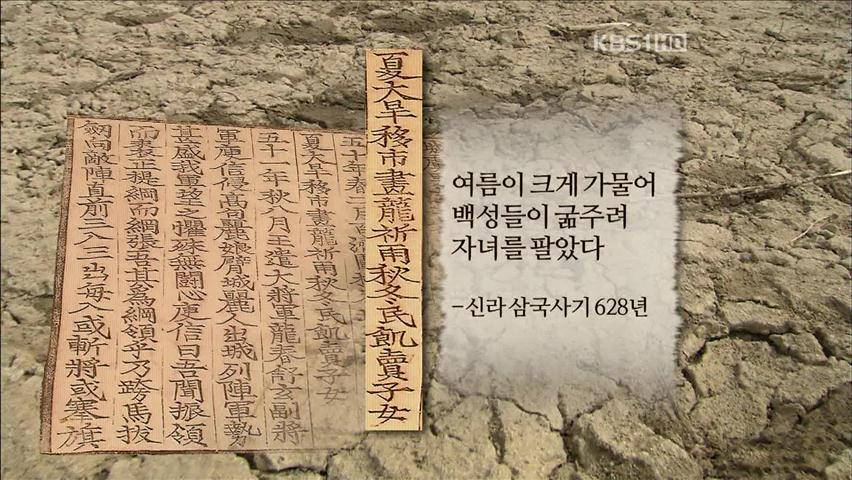 KBS1HD
夏大旱移市畫龍祈雨秋冬民飢賣子女
五十年春二月百濟圍
夏大旱移市畫龍祈雨秋冬民飢賣子女
五十一年秋八月王遣大將軍龍春舒玄副將
軍庾信侵高句麗娘臂城麗人出城列陣軍勢
甚盛我軍望之懼殊無鬪心庾信曰吾聞振領
而裘正提綱而網張吾其爲綱領乎乃跨馬拔
劒向敵陣直前三入三出每入或斬將或搴旗
여름이 크게 가물어
백성들이 굶주려
자녀를 팔았다
- 신라 삼국사기 628년